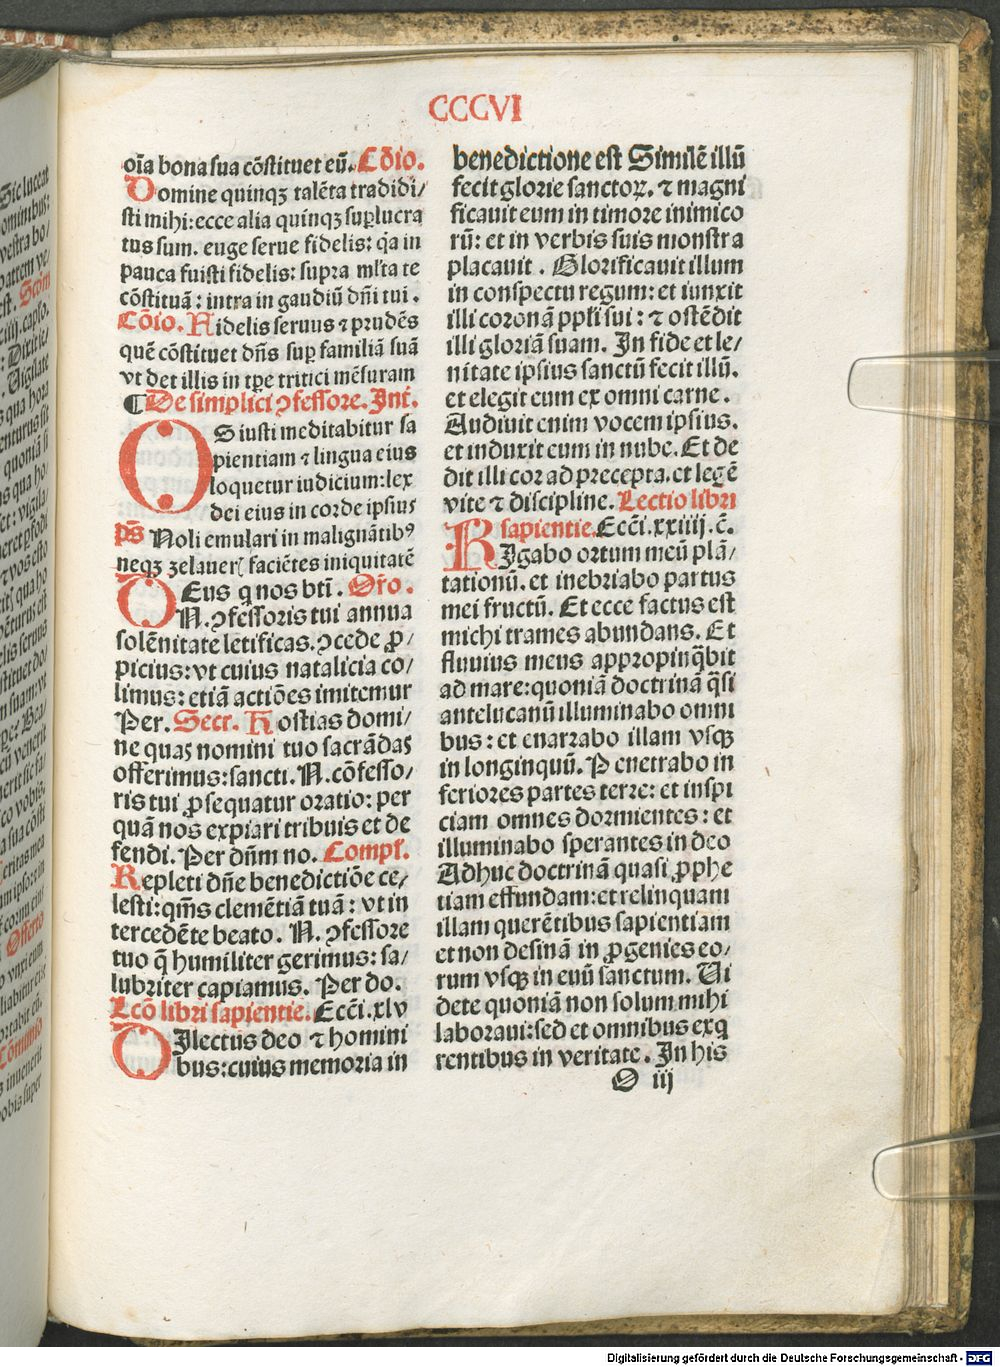 CCCVI
oīa bona sua cōstituet eū. Cōio.
Domine quinqꝫ talēta tradidi/
sti mihi: ecce alia quinqꝫ suꝑlucra
tus sum. euge serue fidelis: q̄a in
pauca fuisti fidelis: supra ml̄ta te
cōstituā: intra in gaudiū dn̄i tui.
Cōio. Fidelis seruus ⁊ prudēs
quē cōstituet dn̄s suꝑ familiā suā
vt det illis in tꝑe tritici mēsuram
¶De simplici ꝯfessore. Int̄.
OS iusti meditabitur sa
pientiam ⁊ lingua eius
loquetur iudicium: lex
dei eius in corde ipsius
ps̄ Noli emulari in malignātibꝰ
neqꝫ zelauerꝭ faciētes iniquitatē
DEus q nos bt̄i. Or̄o.
N. ꝯfessoris tui annua
solēnitate letificas. ꝯcede ꝓ/
picius: vt cuius natalicia co/
limus: etiā actiōes imitemur
Per. Secr. Hostias domi/
ne quas nomini tuo sacrādas
offerimus: sancti. N. cōfesso/
ris tui ꝓsequatur oratio: per
quā nos expiari tribuis et de
fendi. Per dn̄m no. Compl̄.
Repleti dn̄e benedictiōe ce/
lesti: qm̄s clemētiā tuā: vt in
tercedēte beato. N. ꝯfessore
tuo q̄ humiliter gerimus: sa/
lubriter capiamus. Per do.
Lcō libri sapientie. Ecc̄i. xlv
DIlectus deo ⁊ homini
bus: cuius memoria in
benedictione est Similē illū
fecit glorie sanctoꝝ. ⁊ magni
ficauit eum in timore inimico
rū: et in verbis suis monstra
placauit. Glorificauit illum
in conspectu regum: et iunxit
illi coronā ppl̄i sui: ⁊ ostēdit
illi gloriā suam. In fide et le/
nitate ipsius sanctū fecit illū.
et elegit eum ex omni carne.
Audiuit enim vocem ipsius.
et induxit eum in nube. Et de
dit illi cor ad precepta. et legē
vite ⁊ discipline. Lectio libri
sapientie. Ecc̄i. xxiiij. c̄.
RIgabo ortum meū plā/
tationū. et inebriabo partus
mei fructū. Et ecce factus est
michi trames abundans. Et
fluuius meus appropinq̄bit
ad mare: quoniā doctrinā q̄si
antelucanū illuminabo omni
bus: et enarrabo illam vsqꝫ
in longinquū. Penetrabo in
feriores partes terre: et inspi
ciam omnes dormientes: et
illuminabo sperantes in deo
Adhuc doctrinā quasi ꝓphe
tiam effundam: et relinquam
illam querētibus sapientiam
et non desinā in ꝓgenies eo/
rum vsqꝫ in euū sanctum. Ui
dete quoniā non solum mihi
laboraui: sed et omnibus exq
rentibus in veritate. In his
O iij
Digitalisierung gefördert durch die Deutsche Forschungsgemeinschaft - DFG